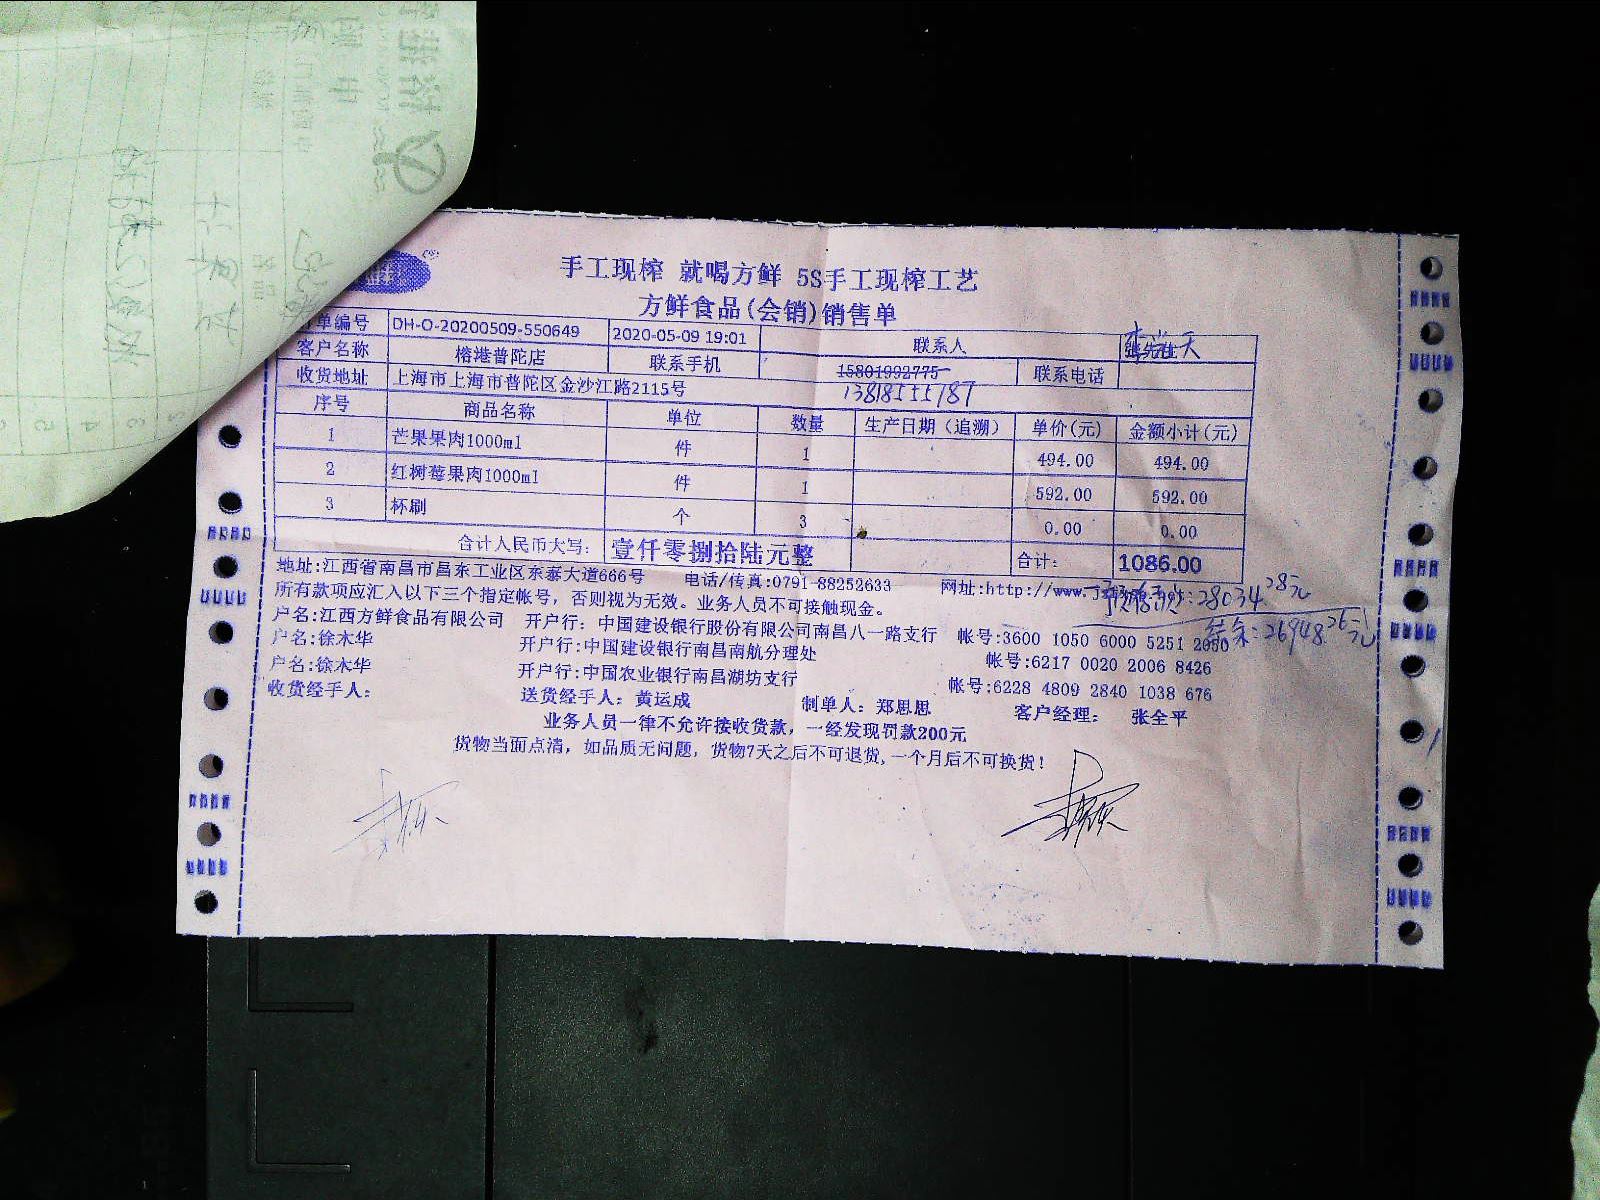 手工现榨 就喝方鲜 5S手工现榨工艺
方鲜食品(会销)销售单
单编号 DH-O-20200509-550649 2020-05-09 19:01 联系人
客户名称 榕港普陀店 联系手机 15801992775 联系电话
收货地址 上海市上海市普陀区金沙江路2115号 13818555187
序号 商品名称 单位 数量 生产日期（追溯） 单价(元) 金额小计(元)
1 芒果果肉1000ml 件 1 494.00 494.00
2 红树莓果肉1000ml 件 1 592.00 592.00
3 杯刷 个 3 0.00 0.00
合计人民币大写: 壹仟零捌拾陆元整 合计: 1086.00
地址:江西省南昌市昌东工业区东泰大道666号 电话/传真:0791-88252633 网址:http://www.
28034.28元
所有款项应汇入以下三个指定帐号，否则视为无效。业务人员不可接触现金。
结余:26948.26元
户名:江西方鲜食品有限公司 开户行: 中国建设银行股份有限公司南昌八一路支行 帐号:3600 1050 6000 5251 2050
户名:徐木华 开户行:中国建设银行南昌南航分理处 帐号:6217 0020 2006 8426
户名:徐木华 开户行:中国农业银行南昌湖坊支行 帐号:6228 4809 2840 1038 676
收货经手人: 送货经手人: 黄运成 制单人: 郑思思 客户经理: 张全平
业务人员一律不允许接收货款，一经发现罚款200元
货物当面点清，如品质无问题，货物7天之后不可退货,一个月后不可换货!